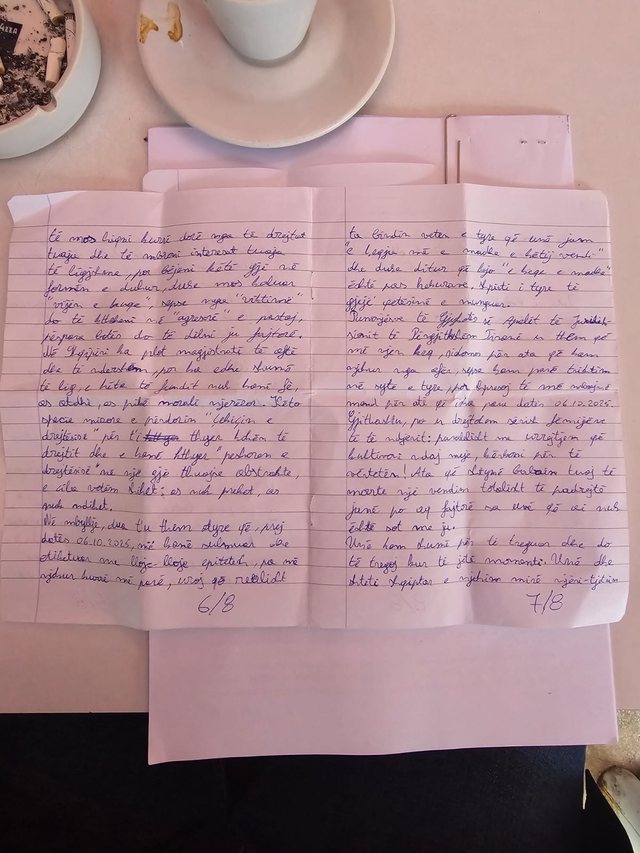 të mos hiqni kurrë dorë nga të drejtat
tuaja dhe të mbroni interesat tuaja
të ligjshme, por bëjeni këtë gjë në
formën e duhur, duke mos kaluar
"vijën e kuqe", sepse nga "viktimë"
do të ktheheni në "agresorë" e pastaj,
përpara botës do të dilni ju fajtorë.
Në Shqipëri ka plot magjistratë të aftë
dhe të ndershëm, por ka edhe shumë
të keq, e këta të fundit nuk kanë fe,
as atdhe, as pikë morali njerëzor. Këto
specie mizore e përdorin "Çekiçin e
drejtësisë" për t'i thyer kokën të
drejtit dhe e kanë kthyer "peshoren e
drejtësisë" në një gjë thuajse abstrakte,
e cila vetëm s'bët: as nuk preket, as
nuk ndihet.
Në mbyllje, dua t'u them atyre që, prej
datës 06.10.2025, më kanë sulmuar dhe
etiketuar me lloje-lloje epitetesh, pa më
njohur kurrë më parë, uroj që realisht
6/8
ta bindin veten e tyre që unë jam
"e keqja më e madhe e këtij vendi"
dhe duke ditur që kjo "e keqe e madhe"
është pas hekurave, shpirti i tyre të
gjejë qetësinë e munguar.
Punonjësve të Gjykatës së Apelit të Juridik-
sionit të Përgjithshëm Tiranë iu them që
më vjen keq, sidomos për ata që kam
njohur nga afër, sepse kam parë trishtim
në sytë e tyre, por besoj të më mbajnë
mend për atë që isha para datës 06.10.2025.
Gjithashtu, po iu drejtohem sërish fëmijëve
të të ndjerit: paralelisht me urrejtjen që
kultivoni ndaj meje, kërkoni për të
vërtetën! Ata që shtynë babain tuaj të
marrë një vendim totalisht të padrejtë
janë po aq fajtorë sa unë që ai nuk
është sot me ju.
Unë kam shumë për të treguar dhe do
të tregoj kur të jetë momenti. Unë dhe
Shteti Shqiptar e njohim mirë njëri-tjetrin
7/8